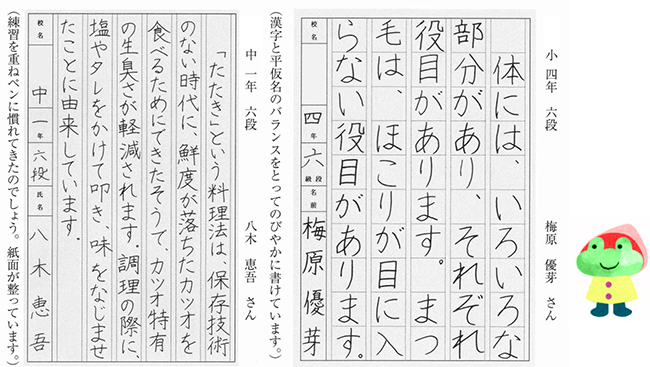 小四年　六段　梅原　優芽　さん
体には、いろいろな
部分があり、それぞれ
役目があります。まつ
毛は、ほこりが目に入
らない役目があります。
校名　四年　六段級　名前　梅原優芽
（漢字と平仮名のバランスをとってのびやかに書けています。）
中一年　六段　八木　恵吾　さん
「たたき」という料理法は、保存技術
のない時代に、鮮度が落ちたカツオを
食べるためにできたそうで、カツオ特有
の生臭さが軽減されます。調理の際に、
塩やタレをかけて叩き、味をなじませ
たことに由来しています。
校名　中一年　六段　氏名　八木恵吾
（練習を重ねペンに慣れてきたのでしょう。紙面が整っています。）